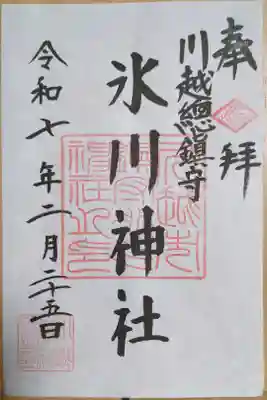 奉拝
川越總鎮守
氷川神社
令和七年二月二十五日